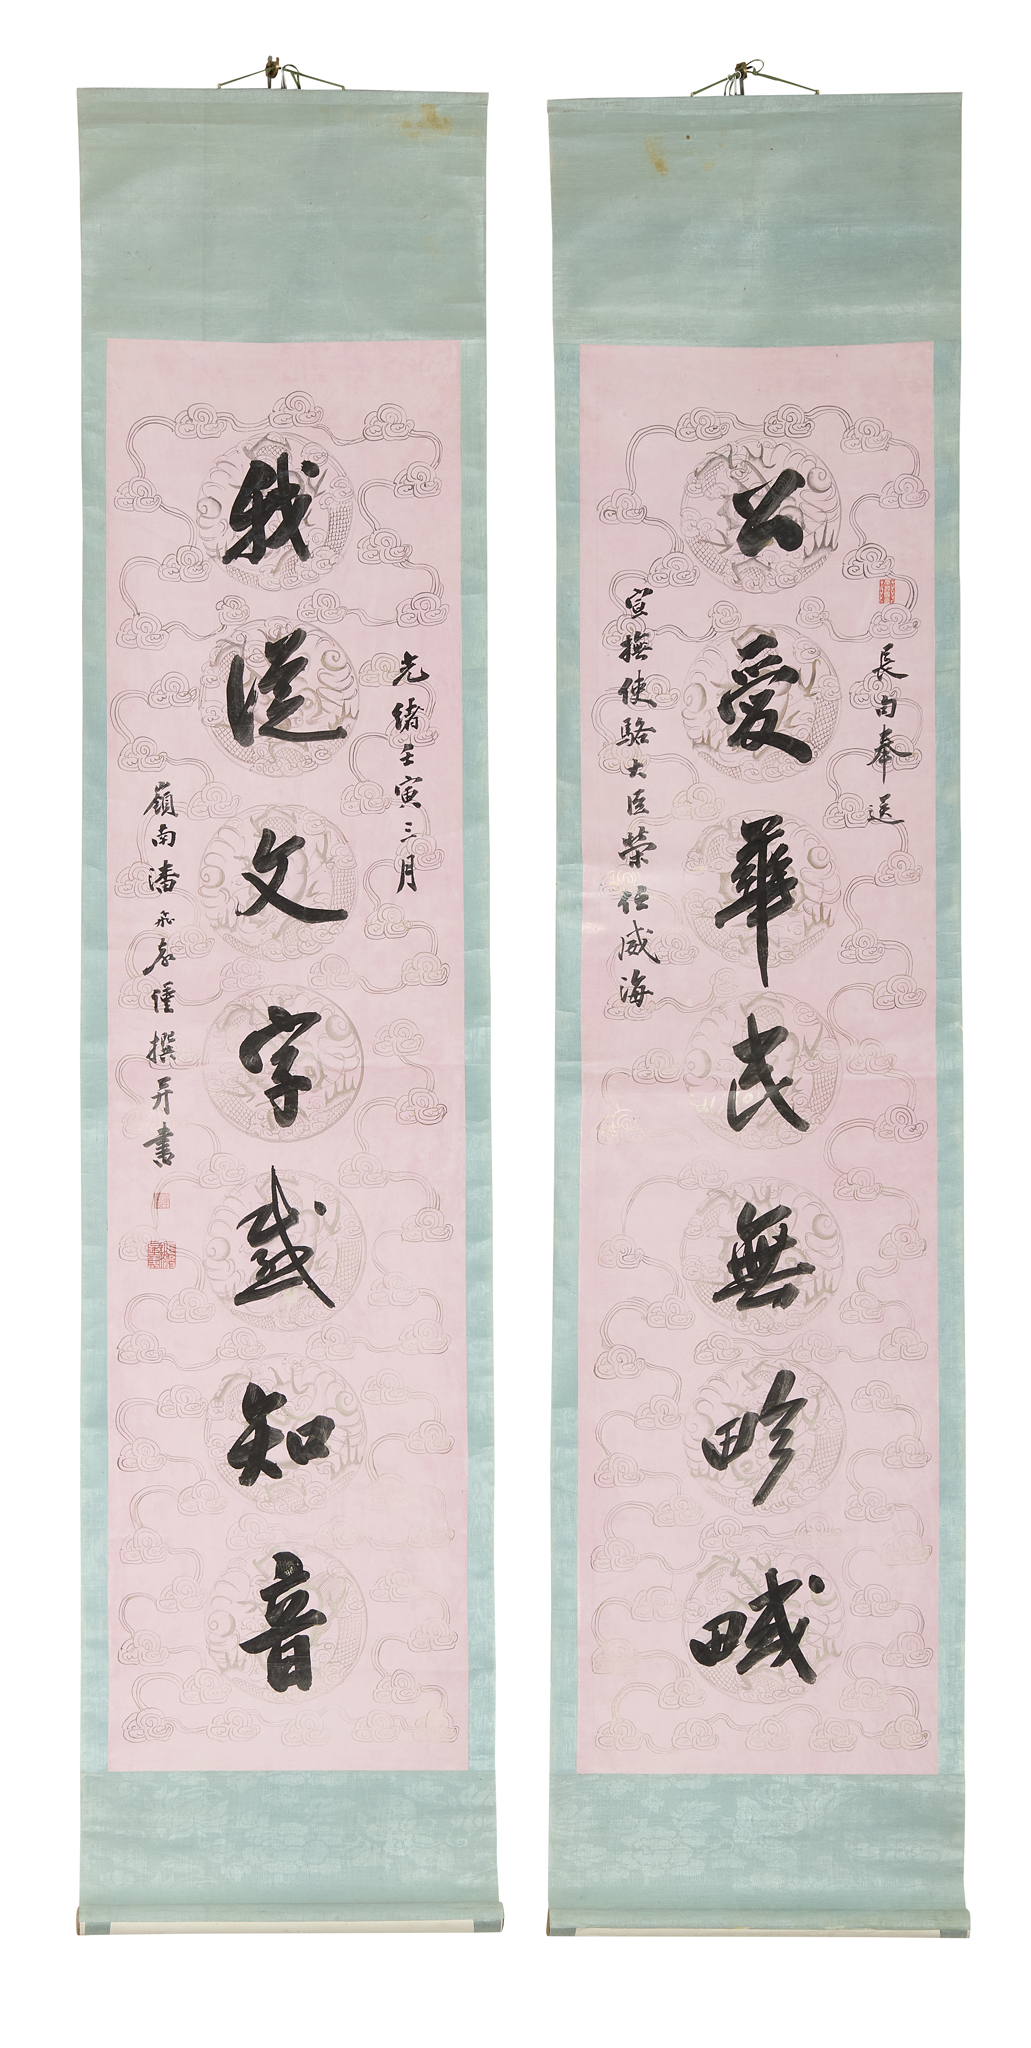 長句奉送
公愛華民無畛域
宣撫使駱大臣榮任威海
光緒壬寅三月
我從文字感知音
嶺南潘飛聲謹撰并書